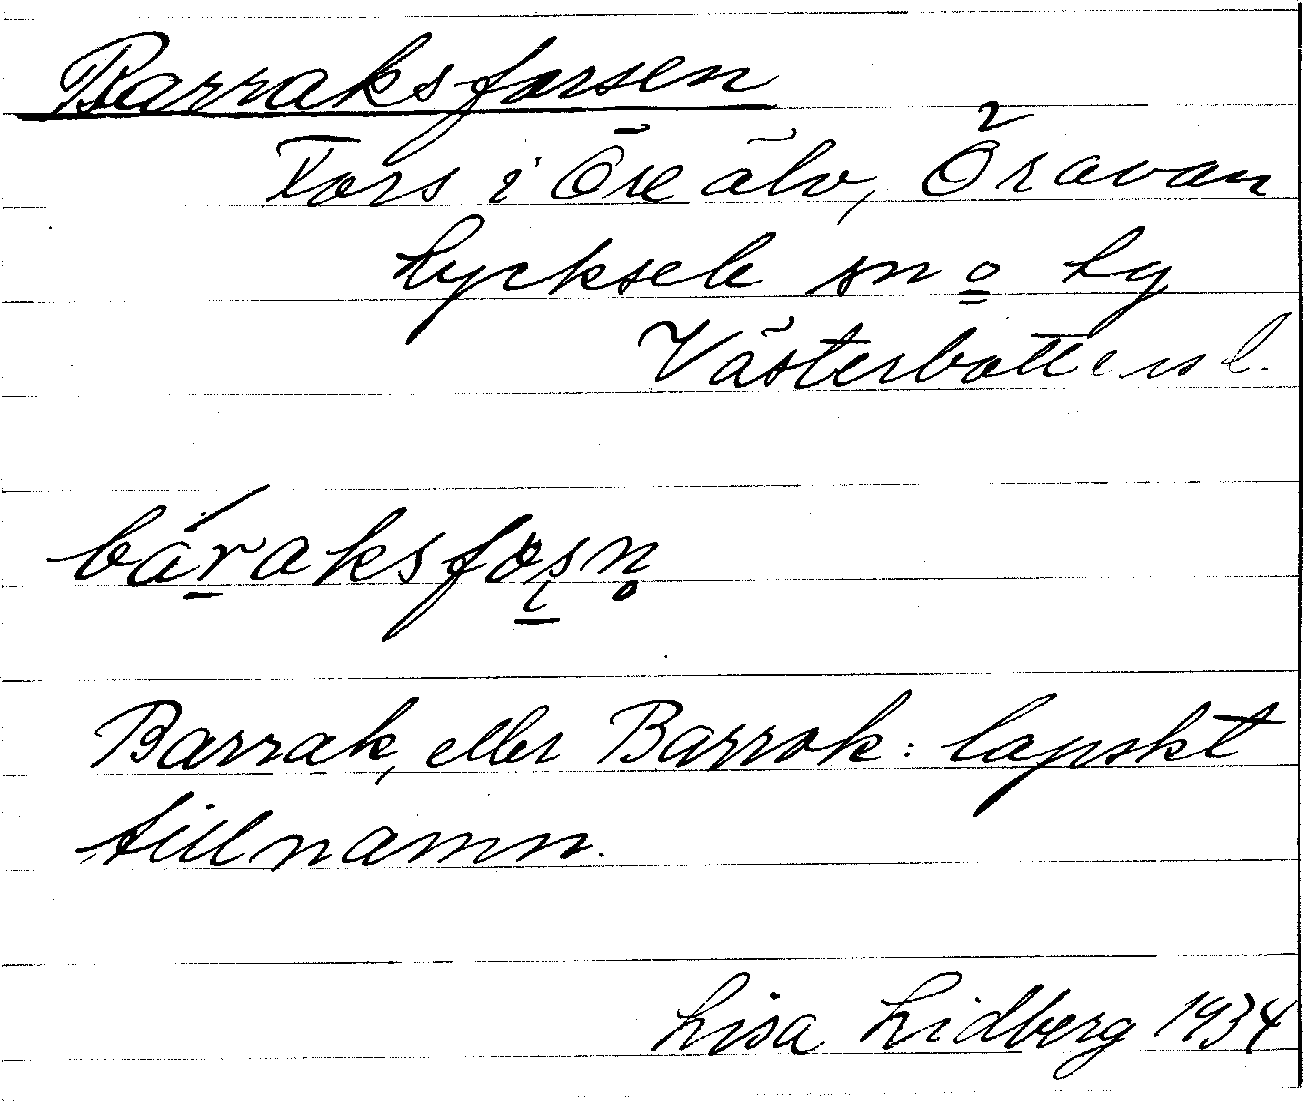 Barraksforsen
Fors i Öre älv, Öravan
Lycksele sn o lg
Västerbottensl.
báraksfosn̥
Barrak, eller Barrok: lapskt
tillnamn.
Lisa Lidberg 1934